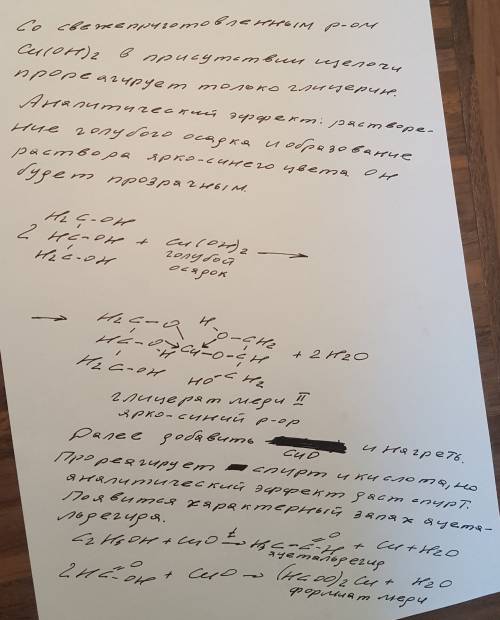 Со свежеприготовленным р-ом
Cu(OH)2 в присутствии щелочи
прореагирует только глицерин.
Аналитический эффект: растворе-
ние голубого осадка и образование
раствора ярко-синего цвета он
будет прозрачным.
H2C-OH
2 HC-OH + Cu(OH)2 →
H2C-OH голубой
осадок
→ H2C-O H O-CH2
HC-O Cu O-CH + 2H2O
H
H2C-OH HO-CH2
глицерат меди II
ярко-синий р-ор
Далее добавить CuO и нагреть.
Прореагирует спирт и кислота, но
аналитический эффект даст спирт.
Появится характерный запах ацета-
льдегида.
C2H5OH + CuO t→ H3C-C=O-H + Cu + H2O
ацетальдегид
2HC=O-OH + CuO → (HCOO)2Cu + H2O
формиат меди